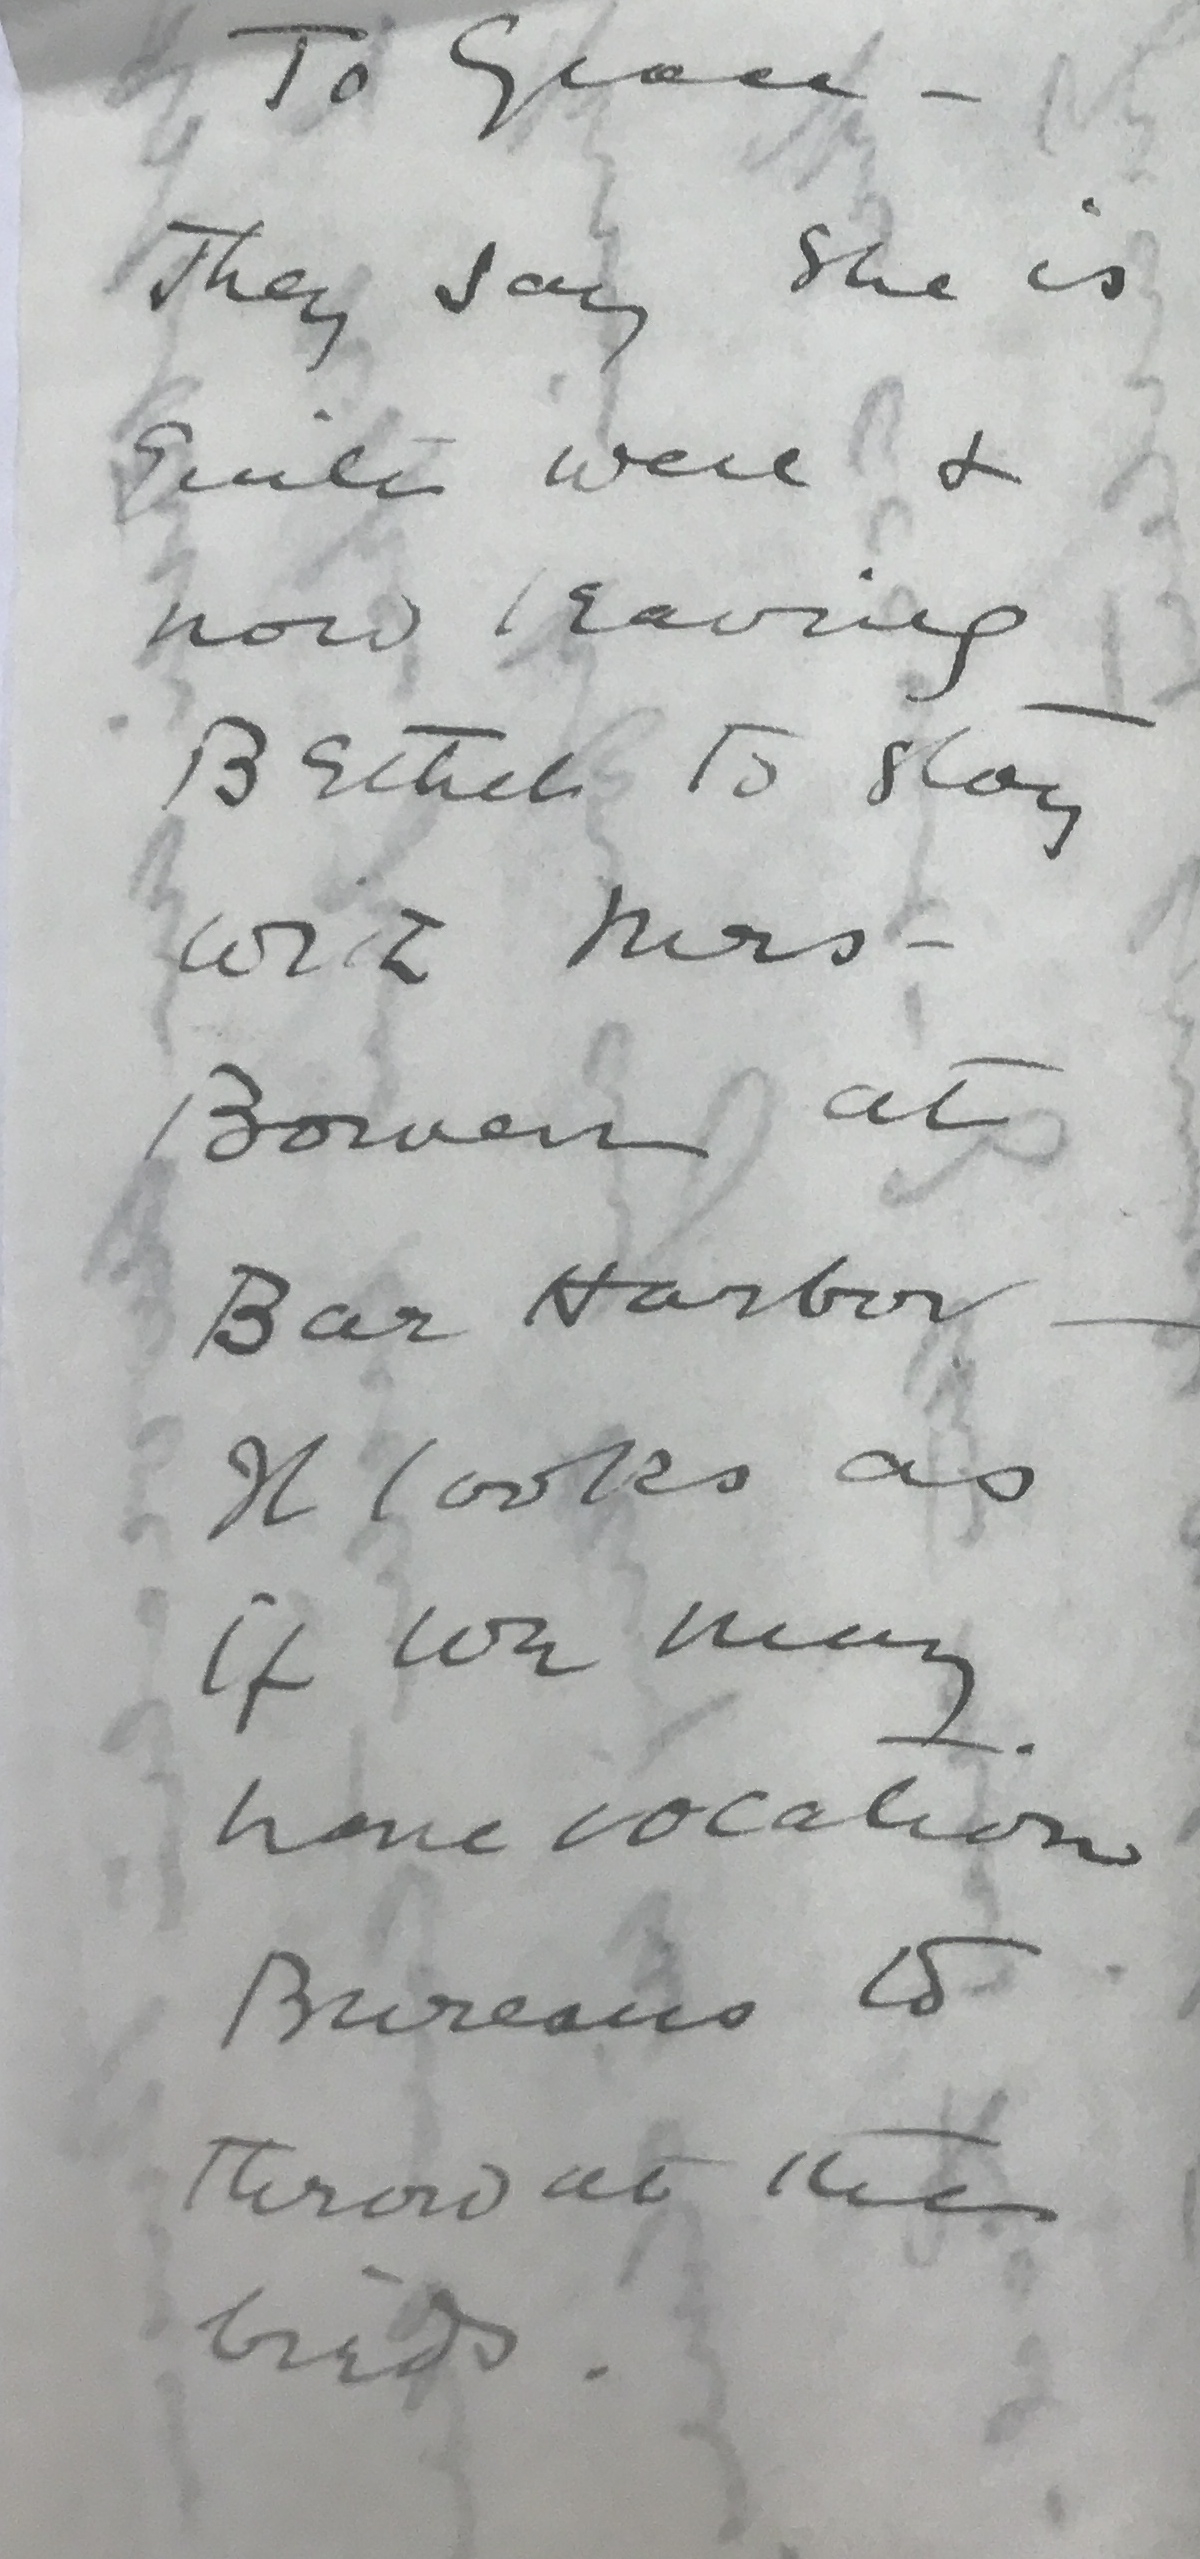 To Grace -
They say she is
quite well &
now leaving
Bethel to stay
with Mrs -
Bowen at
Bar Harbor -
It looks as
if we may
have vocation
Bureaus to
throw at the
birds.